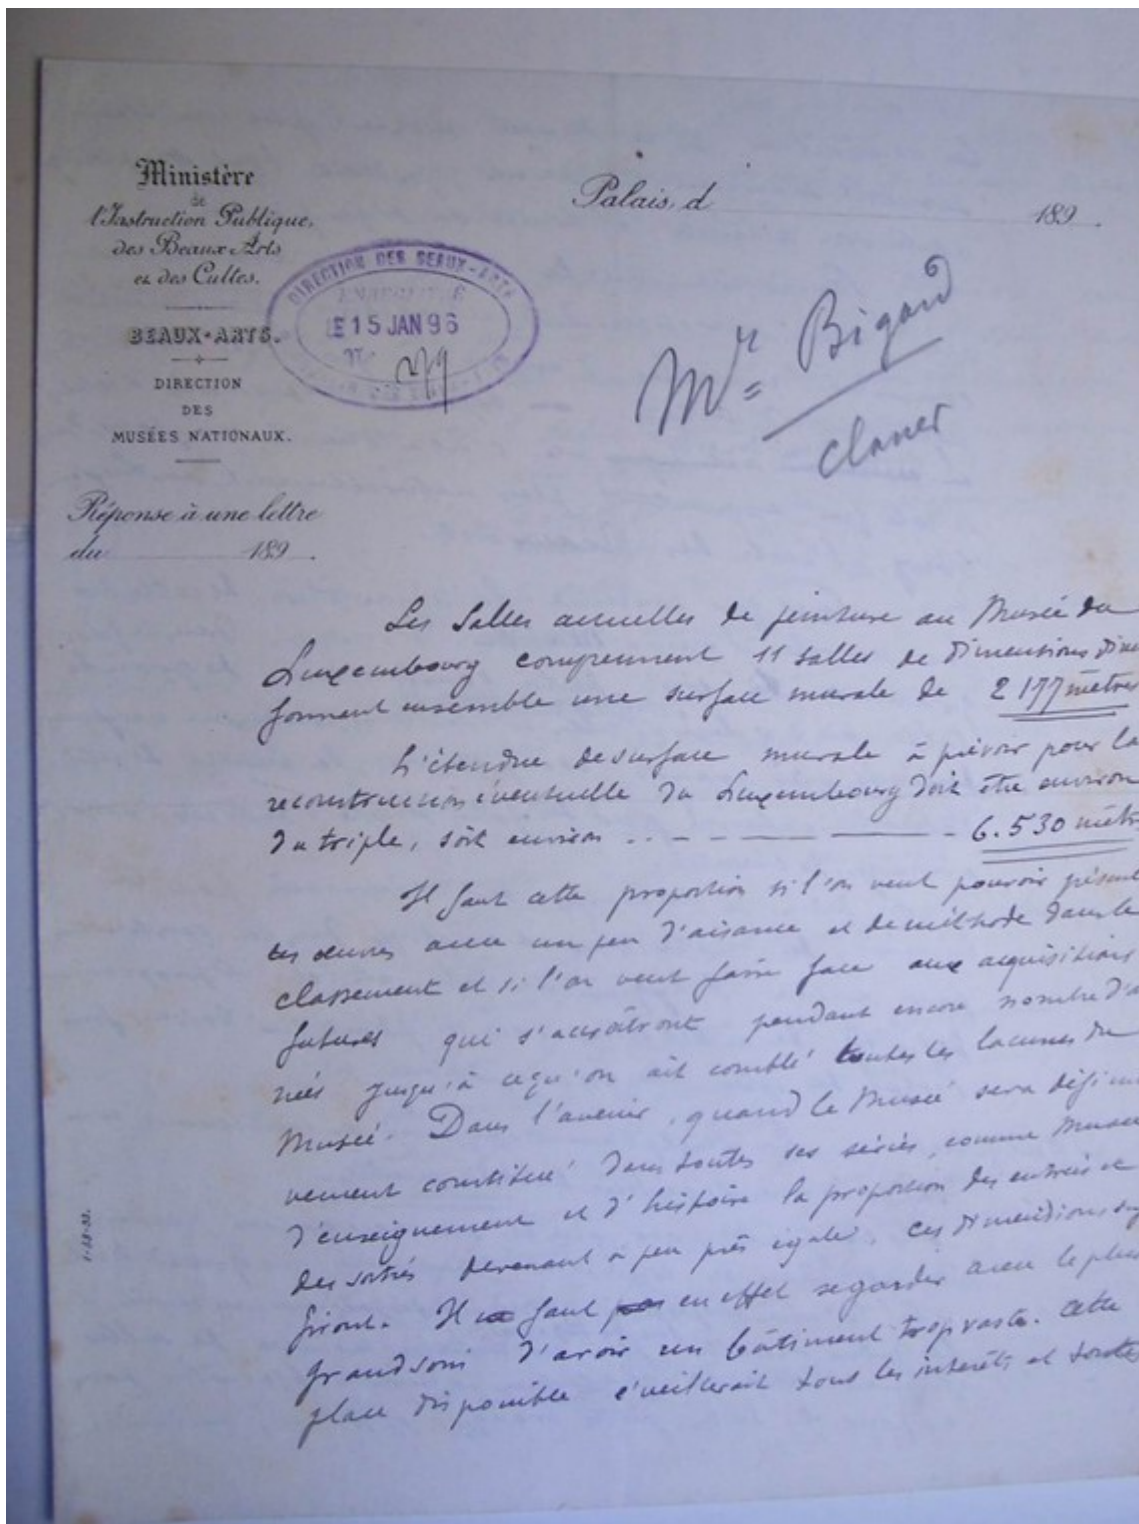 Ministère
de
l'Instruction Publique,
des Beaux Arts
et des Cultes.
BEAUX-ARTS.
DIRECTION
DES
MUSÉES NATIONAUX.
Réponse à une lettre
du 189 .
Palais, d 189 .
DIRECTION DES BEAUX-ARTS
ENREGISTRÉ
LE 15 JAN 96
N° 279
Mr Bigard
classer
Les Salles actuelles de peinture au Musée du
Luxembourg comprennent 11 salles de dimensions diver
formant ensemble une surface murale de 2177 mètres
L'étendue de surface murale à prévoir pour la
reconstruction éventuelle du Luxembourg doit être environ
du triple, soit environ .. - - - - - 6.530 mètr
Il faut cette proportion si l'on veut pouvoir présent
les œuvres avec un peu d'aisance et de méthode dans le
classement et si l'on veut faire face aux acquisitions
futures qui s'accroîtront pendant encore nombre d'a
nées jusqu'à ce qu'on ait comblé toutes les lacunes du
Musée. Dans l'avenir, quand le Musée sera défini
vement constitué dans toutes ses séries, comme Musée
d'enseignement et d'histoire la proportion des entrées et
des sorties devenant à peu près égale, ces dimensions suf
firont. Il faut en effet se garder avec le plus
grand soin d'avoir un bâtiment trop vaste. Cette
place disponible éveillerait tous les intérêts et toutes